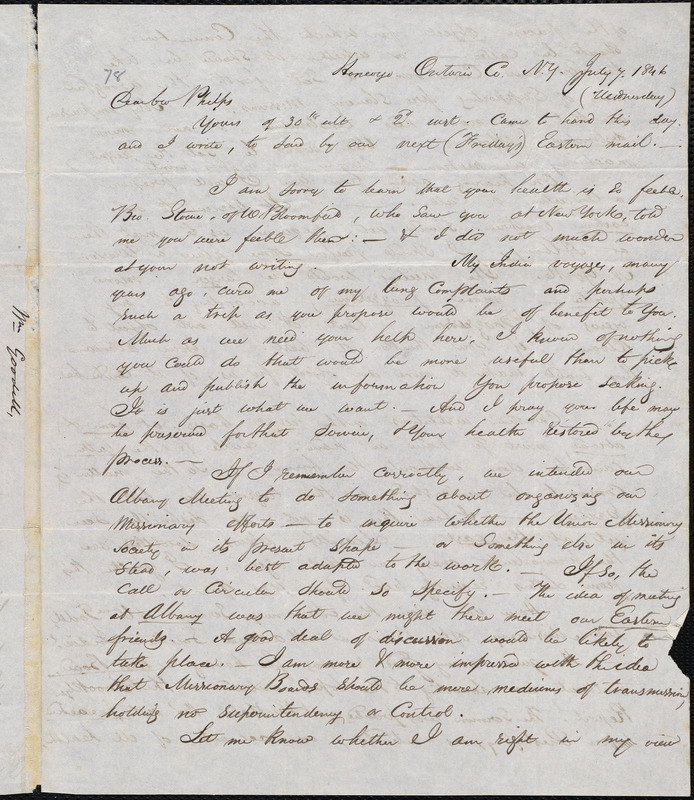 78
Honeoye Ontario Co. N.Y. July 7. 1846
(Wednesday)
Dear bro Phelps
Yours of 30th ult & 2d inst. Came to hand this day.
and I write, to send by our next (Friday's) Eastern mail. —
I am sorry to learn that your health is so feeble.
Bro Stowe, of W Bloomfield, who saw you at New York, told
me you were feeble then: — & I did not much wonder
at your not writing. My India voyages, many
years ago, cured me of my lung complaints and perhaps
such a trip as you propose would be of benefit to you.
Much as we need your help here, I know of nothing
you could do that would be more useful than to pick
up and publish the information you propose seeking.
It is just what we want. — And I pray your life may
be preserved for that service, & your health restored by the
process. —
If I remember correctly, we intended our
Albany Meeting to do something about organizing our
Missionary efforts — to inquire whether the Union Missionary
Society in its present shape — or something else in its
stead, was best adapted to the work. — If so, the
call or Circular should so specify. — The idea of meeting
at Albany was that we might there meet our Eastern
friends. — A good deal of discussion would be likely to
take place. — I am more & more impressed with the idea
that Missionary Boards should be mere mediums of transmission,
holding no superintendency or control.
Let me know whether I am right in my view
Wm Goodell,